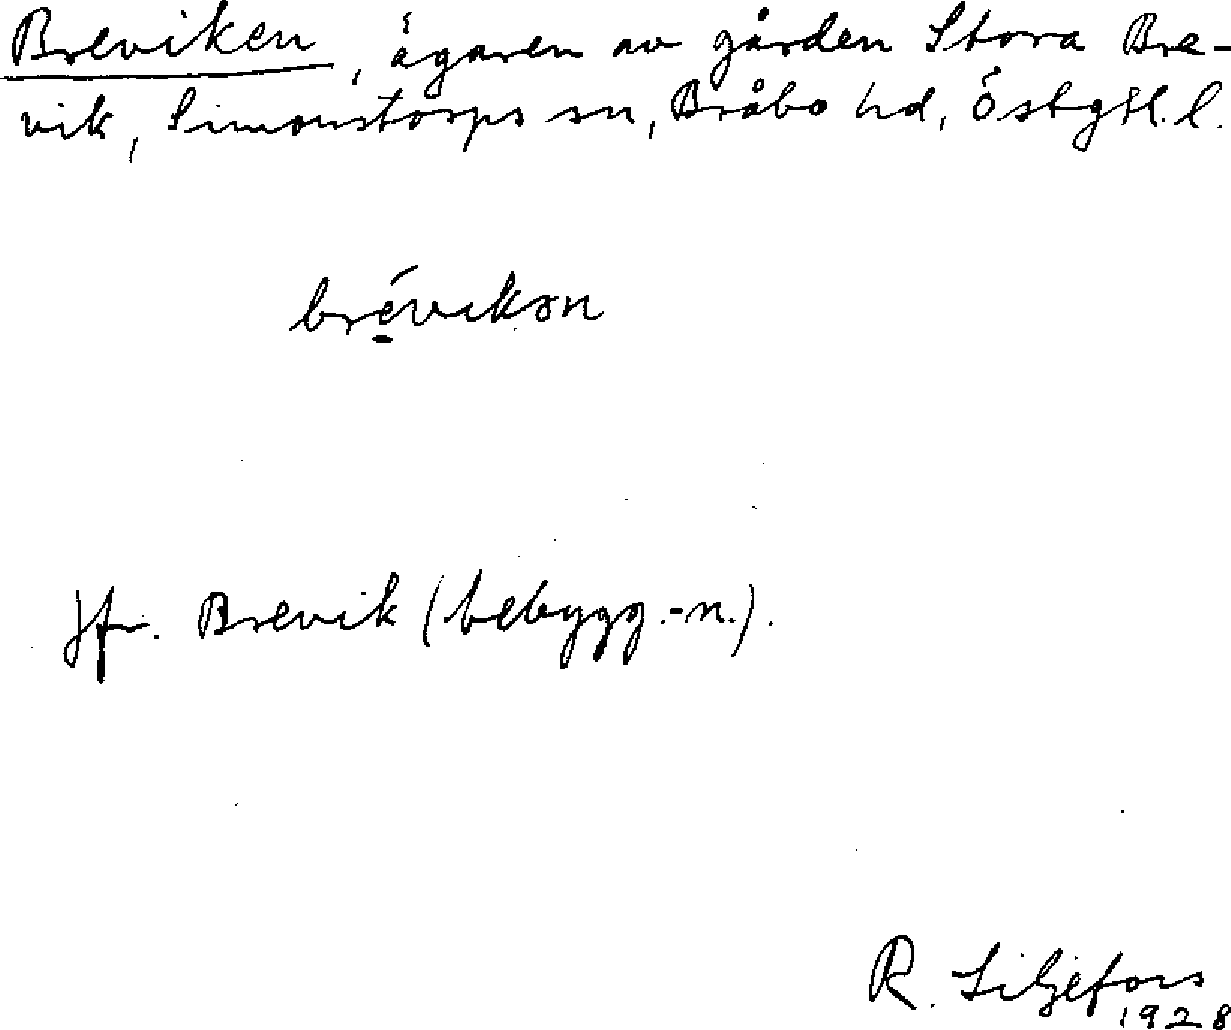 Breviken, ägaren av gården Stora Bre-
vik, Simonstorps sn, Bråbo hd, Östgtl. l.
brévikən
Jfr. Brevik (bebygg.-n.).
R. Liljefors
1928